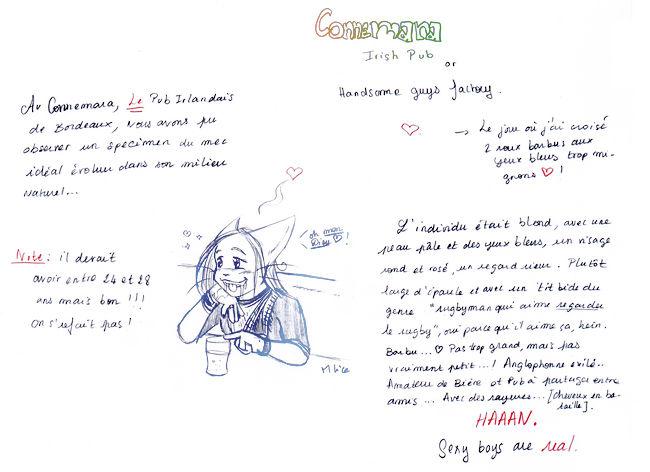 Connemara
Irish Pub
or
Handsome guys factory.
Au Connemara, Le Pub Irlandais
de Bordeaux, nous avons pu
observer un spécimen du mec
idéal évoluer dans son milieu
naturel...
→ Le jour où j'ai croisé
2 roux barbus aux
yeux bleus trop mi-
gnons ♡ !
Note : il devait
avoir entre 24 et 28
ans mais bon !!!
On s'refait pas !
oh mon
Dieu ♡ !
L'individu était blond, avec une
peau pâle et des yeux bleus, un visage
rond et rosé, un regard rieur. Plutôt
large d'épaule et avec un 'tit bide du
genre "rugbyman qui aime regarder
le rugby", oui parce qu'il aime ça, hein.
Barbu... ♡ Pas trop grand, mais pas
vraiment petit...! Anglophone exilé..
Amateur de Bière et Pub à partager entre
amis... Avec des rayures... [Cheveux en ba-
taille].
HAAAN.
Sexy boys are real.